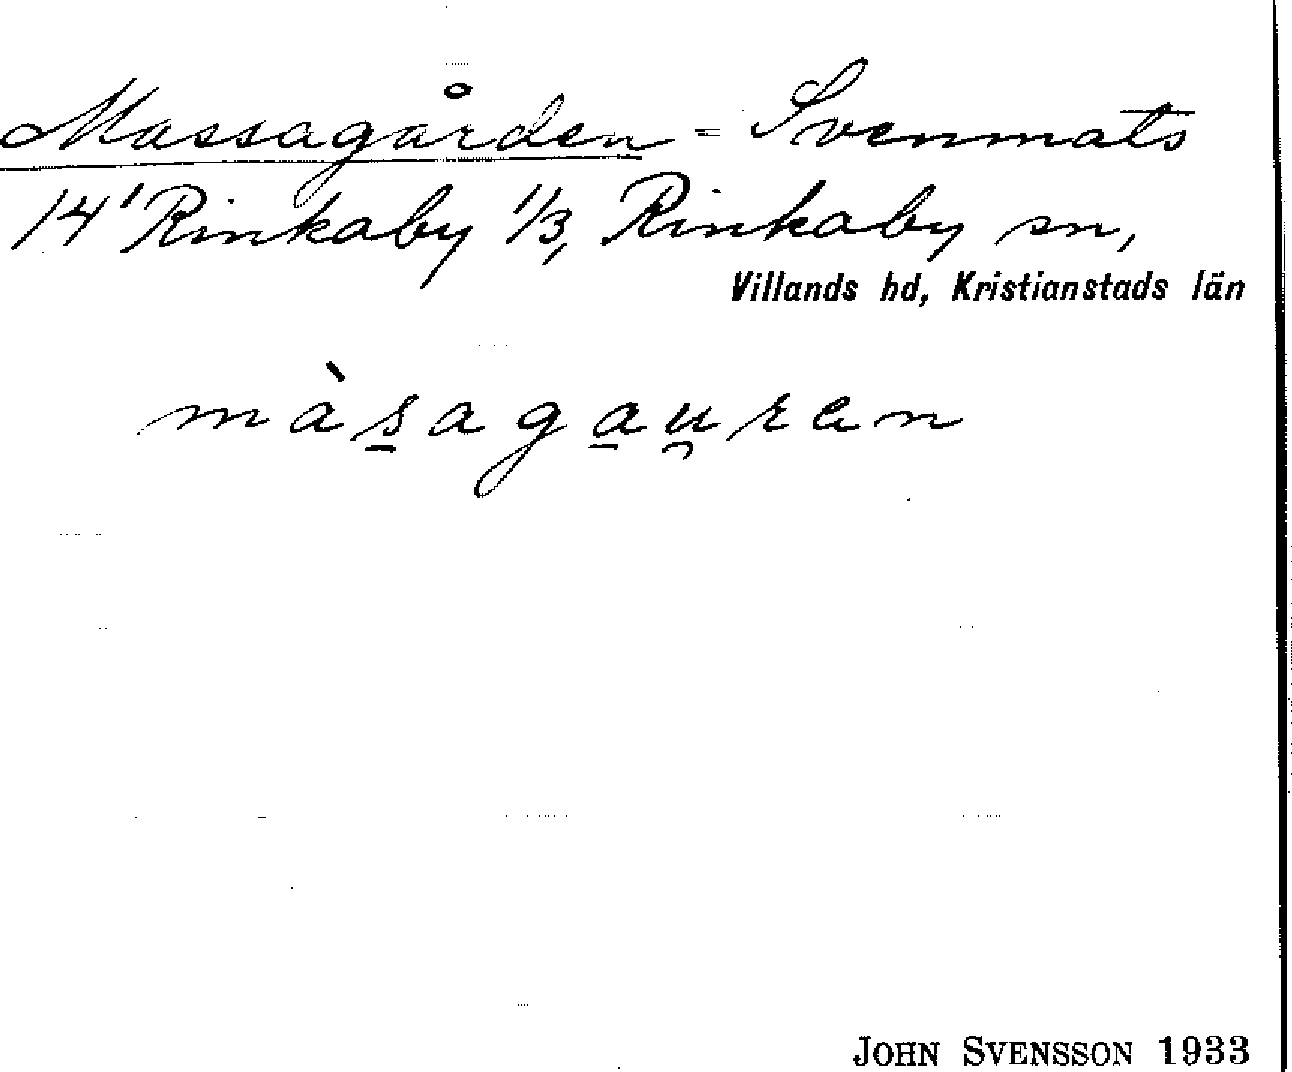 Massagården = Svenmats
14' Rinkaby 1/3, Rinkaby sn,
Villands hd, Kristianstads län
màs̱aga̱u̯ren
JOHN SVENSSON 1933